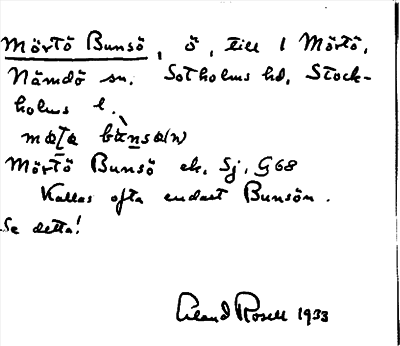 Mörtö Bunsö, ö, till 1 Mörtö,
Nämdö sn. Sotholms hd, Stock-
holms l.
Mörtö Bunsö ek. Sj. G68
Kallas ofta endast Bunsön.
Se detta!
Erland Rosell 1933